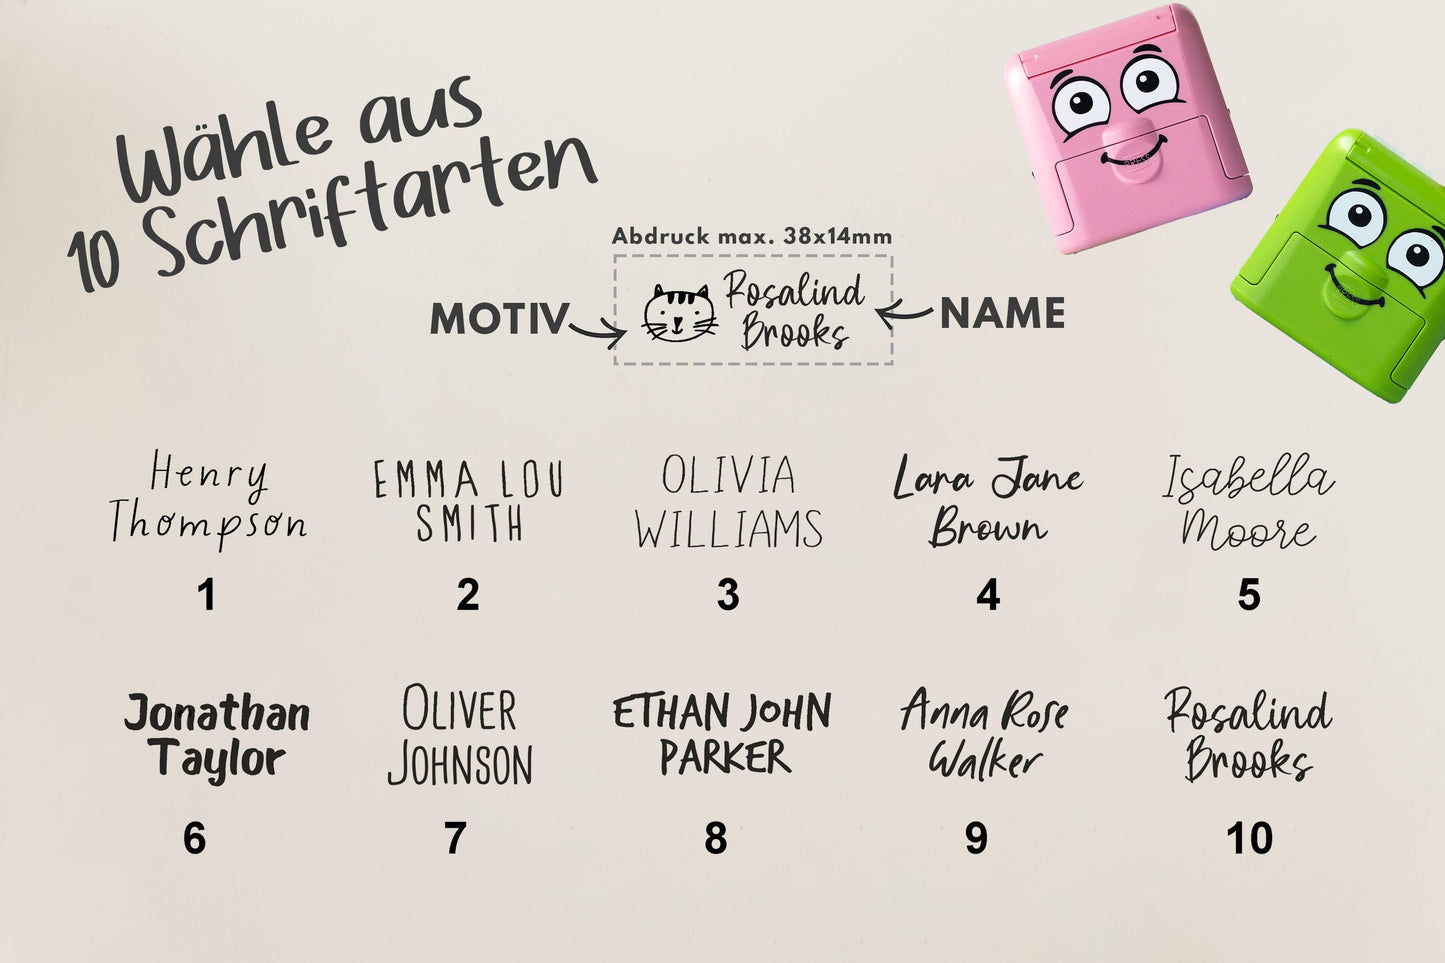 Wähle aus
10 Schriftarten
Abdruck max. 38x14mm
MOTIV
Rosalind
Brooks
NAME
Henry
Thompson
1
EMMA LOU
SMITH
2
OLIVIA
WILLIAMS
3
Lara Jane
Brown
4
Isabella
Moore
5
Jonathan
Taylor
6
OLIVER
JOHNSON
7
ETHAN JOHN
PARKER
8
Anna Rose
Walker
9
Rosalind
Brooks
10